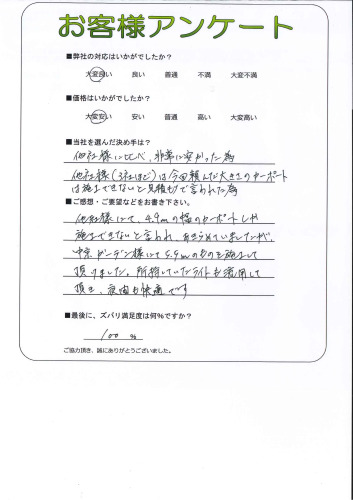 お客様アンケート
■弊社の対応はいかがでしたか？
大変良い 良い 普通 不満 大変不満
■価格はいかがでしたか？
大変安い 安い 普通 高い 大変高い
■当社を選んだ決め手は？
他社様に比べ、非常に安かった為
他社様(3社ほど)は今回頼んだ大きさのカーポート
は施工できないと見積もりで言われた為
■ご感想・ご要望などをお書き下さい。
他社様にて、4.9mの幅のカーポートしか
施工できないと言われ、あきらめていましたが、
中京ガーデン様にて5.9mのものを施工して
頂けました。所持していたライトも活用して
頂き、夜間も快適です
■最後に、ズバリ満足度は何%ですか？
100 %
ご協力頂き、誠にありがとうございました。